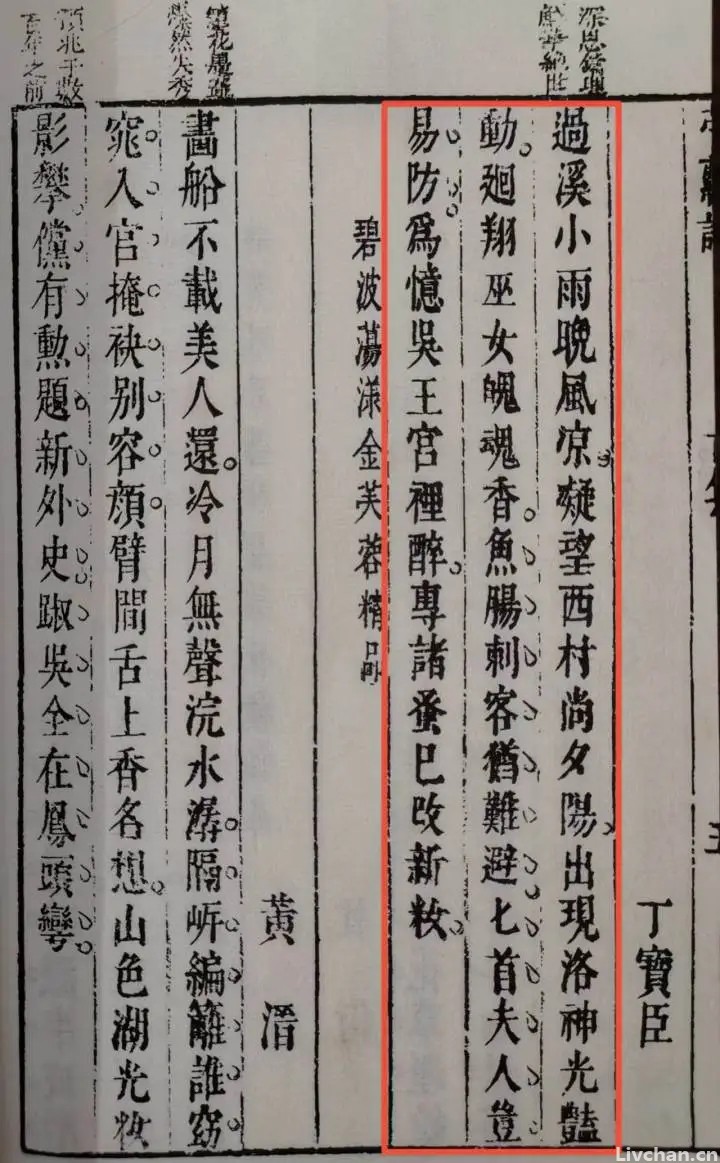 丁寶臣
過溪小雨晚風凉凝望西村尚夕陽出現洛神光豔
動廻翔巫女魄魂香魚腸刺客猶難避匕首夫人豈
易防爲憶吳王宮裡醉專諸蚤巳改新妝
碧波蕩漾金芙蓉精品
黃溍
畵船不載美人還冷月無聲浣水潺隔岍編籬誰窈
窕入宮掩袂别容顔臂間舌上香名想山色湖光妝
影攀儻有勲題新外史踧吳全在鳳頭彎
百年之前
Livchan.cn